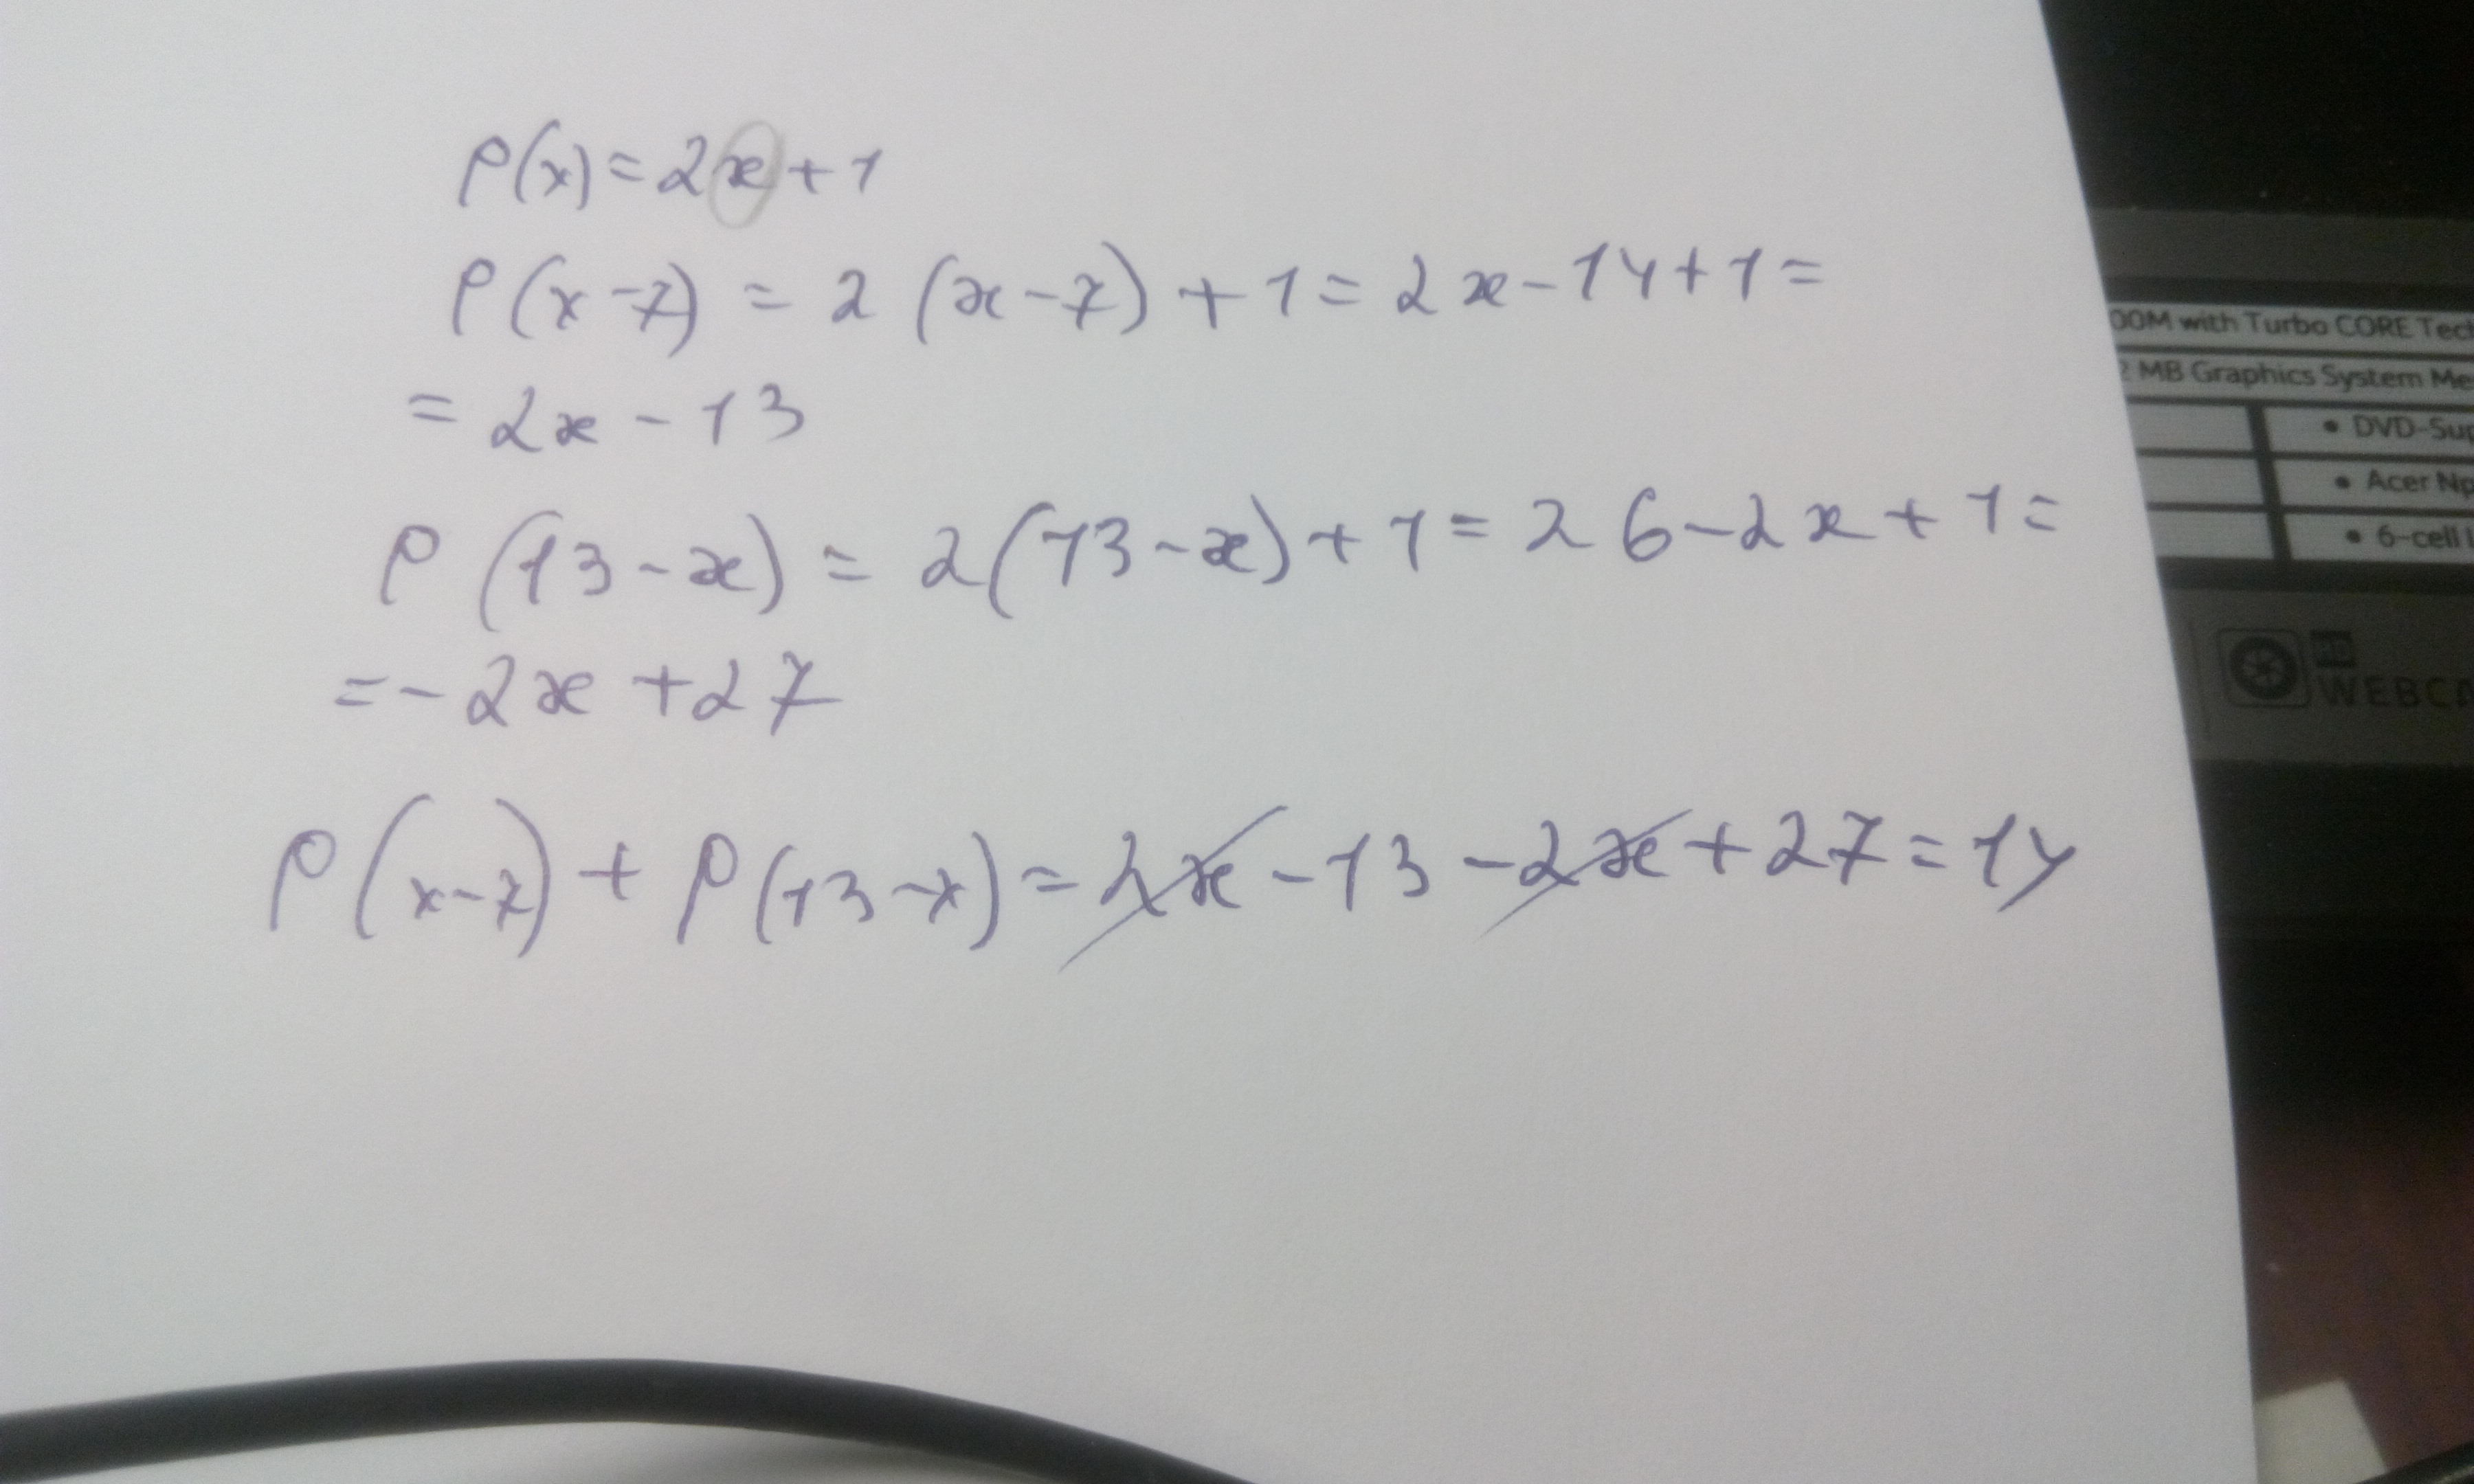 p(x)=2x+1
p(x-7)=2(x-7)+1=2x-14+1=
=2x-13
p(13-x)=2(13-x)+1=26-2x+1=
=-2x+27
p(x-7)+p(13-x)=2x-13-2x+27=14
with Turbo CORE
MB Graphics System
• DVD-Sup
• Acer
• 6-cell
WEBCA